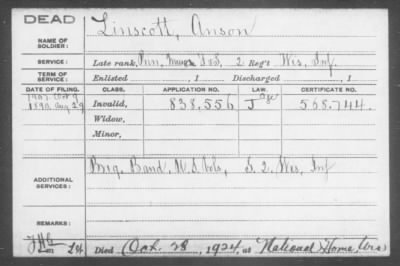 DEAD
Linscott, Anson
NAME OF SOLDIER:
SERVICE: Late rank, Musician U.S.V., 2 Reg't Wis, Inf.
TERM OF SERVICE: Enlisted , 1 Discharged , 1
DATE OF FILING. CLASS. APPLICATION NO. LAW. CERTIFICATE NO.
1907 Oct 9
1890 Aug 29 Invalid, 838,556 J Age 568,744.
Widow,
Minor,
ADDITIONAL SERVICES: Brig. Band, U.S. Vols, 2, Wis, Inf
REMARKS:
Died Oct. 28, 1924, at National Home, Wis